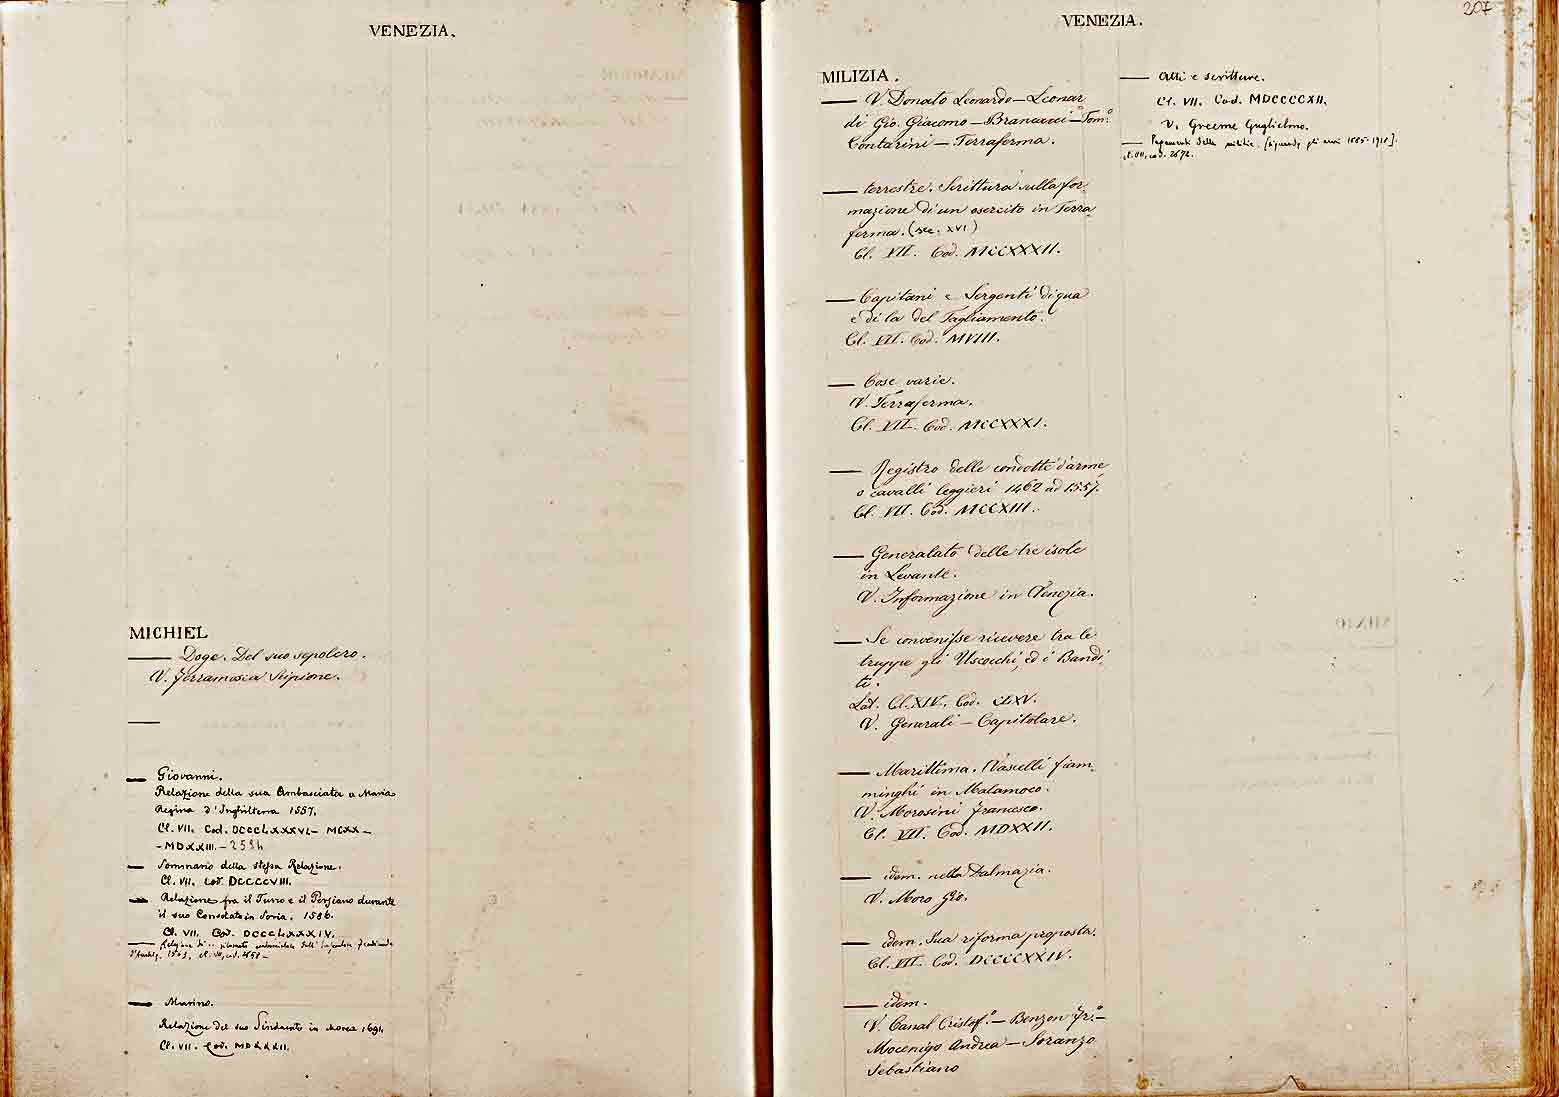 VENEZIA.
MICHIEL
— Doge. Del suo sepolcro.
V. Ferramosca Scipione.
—
— Giovanni.
Relazione della sua Ambasciata a Maria
Regina d'Inghilterra 1557.
Cl. VII. Cod. DCCCLXXXVI – MCXX –
- MDXXIII. – 2534
— Sommario della stessa Relazione.
Cl. VII. Cod. DCCCCVIII.
— Relazione fra il Turco e il Persiano durante
il suo Consolato in Soria. 1586.
Cl. VII. Cod. DCCCLXXXIV.
— Relazione di
— Marino.
Relazione del suo Sindacato in Morea 1691.
Cl. VII. Cod. MDXXXII.
VENEZIA.
207
MILIZIA.
— V. Donato Leonardo – Leonar
di Gio. Giacomo – Brancacci – Tom.º
Contarini – Terraferma.
— terrestre. Scrittura sulla for
mazione di un esercito in Terra
ferma. (sec. XVI)
Cl. VII. Cod. MCCXXXII.
— Capitani e Sergenti di qua
e di la del Tagliamento.
Cl. VII. Cod. MVIII.
— Cose varie.
V. Terraferma.
Cl. VII. Cod. MCCXXXI.
— Registro delle condotte d'arme
o cavalli leggieri 1462 ad 1557.
Cl. VII. Cod. MCCXIII.
— Generalato delle tre isole
in Levante.
V. Informazione in Venezia.
— Se convenisse ricevere tra le
truppe gli Uscocchi, ed i Bandi
ti.
Lat. Cl. XIV. Cod. CLXV.
V. Generali – Capitolare.
— Marittima. Vascelli fiam
minghi in Malamoco.
V. Morosini Francesco.
Cl. VII. Cod. MDXXII.
— idem. nella Dalmazia.
V. Moro Gio.
— idem. Sua riforma proposta.
Cl. VII. Cod. DCCCCXXIV.
— idem.
V. Canal Cristof.º – Benzon Fr.º –
Mocenigo Andrea – Soranzo
Sebastiano
— Atti e scritture.
Cl. VII. Cod. MDCCCCXII.
V. Greeme Guglielmo.
— Pagamenti delle milizie.
cl. VII, cod. 2672.